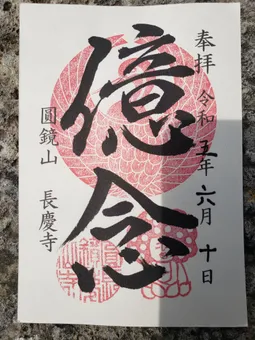 奉拝
令和五年六月十日
億念
圓鏡山 長慶寺